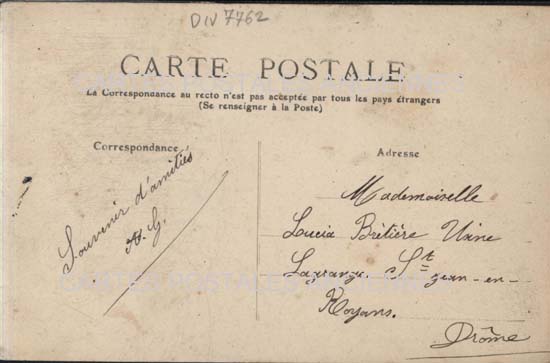 DIV 7762
CARTE POSTALE
La Correspondance au recto n'est pas acceptée par tous les pays étrangers
(Se renseigner à la Poste)
Correspondance
Souvenir d'amitiés
A. G.
Adresse
Mademoiselle
Lucia Brètière Usine
Lagrange St
jean-en-
Royans.
Drôme
CARTES POSTALES